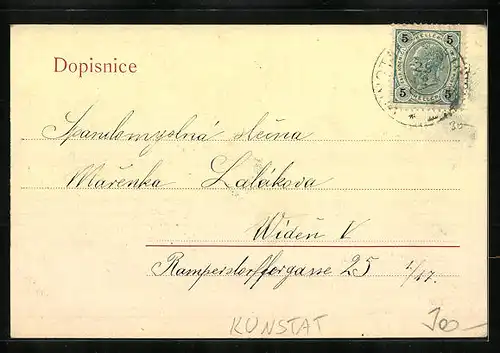 Dopisnice
5 HELLER 5
5 5
30
slečna
Mařenka Lalákova
Wídeň V
Rampersdorffergasse 25 1/17.
KUNSTAT
300-